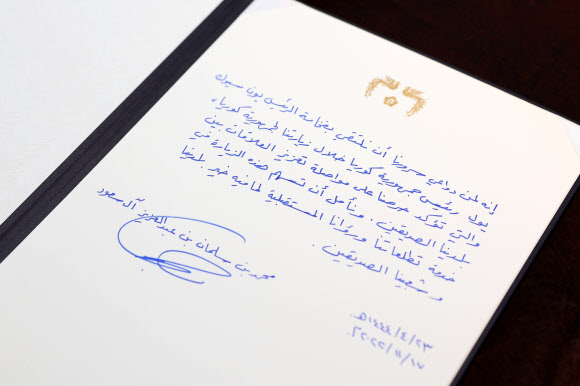 إنه لمن دواعي سرورنا أن نلتقي بفخامة الرئيس يون سيوك
يول رئيس جمهورية كوريا خلال زيارتنا لجمهورية كوريا،
والتي تؤكد حرصنا على مواصلة تعزيز العلاقات بين
بلدينا الصديقين. ونأمل أن تسهم هذه الزيارة في
خدمة تطلعاتنا ورؤانا المستقبلية لما فيه خير بلدينا
وشعبينا الصديقين.
محمد بن سلمان بن عبدالعزيز آل سعود
١٤٤٤/٤/٢٣هـ
٢٠٢٢/١١/١٧